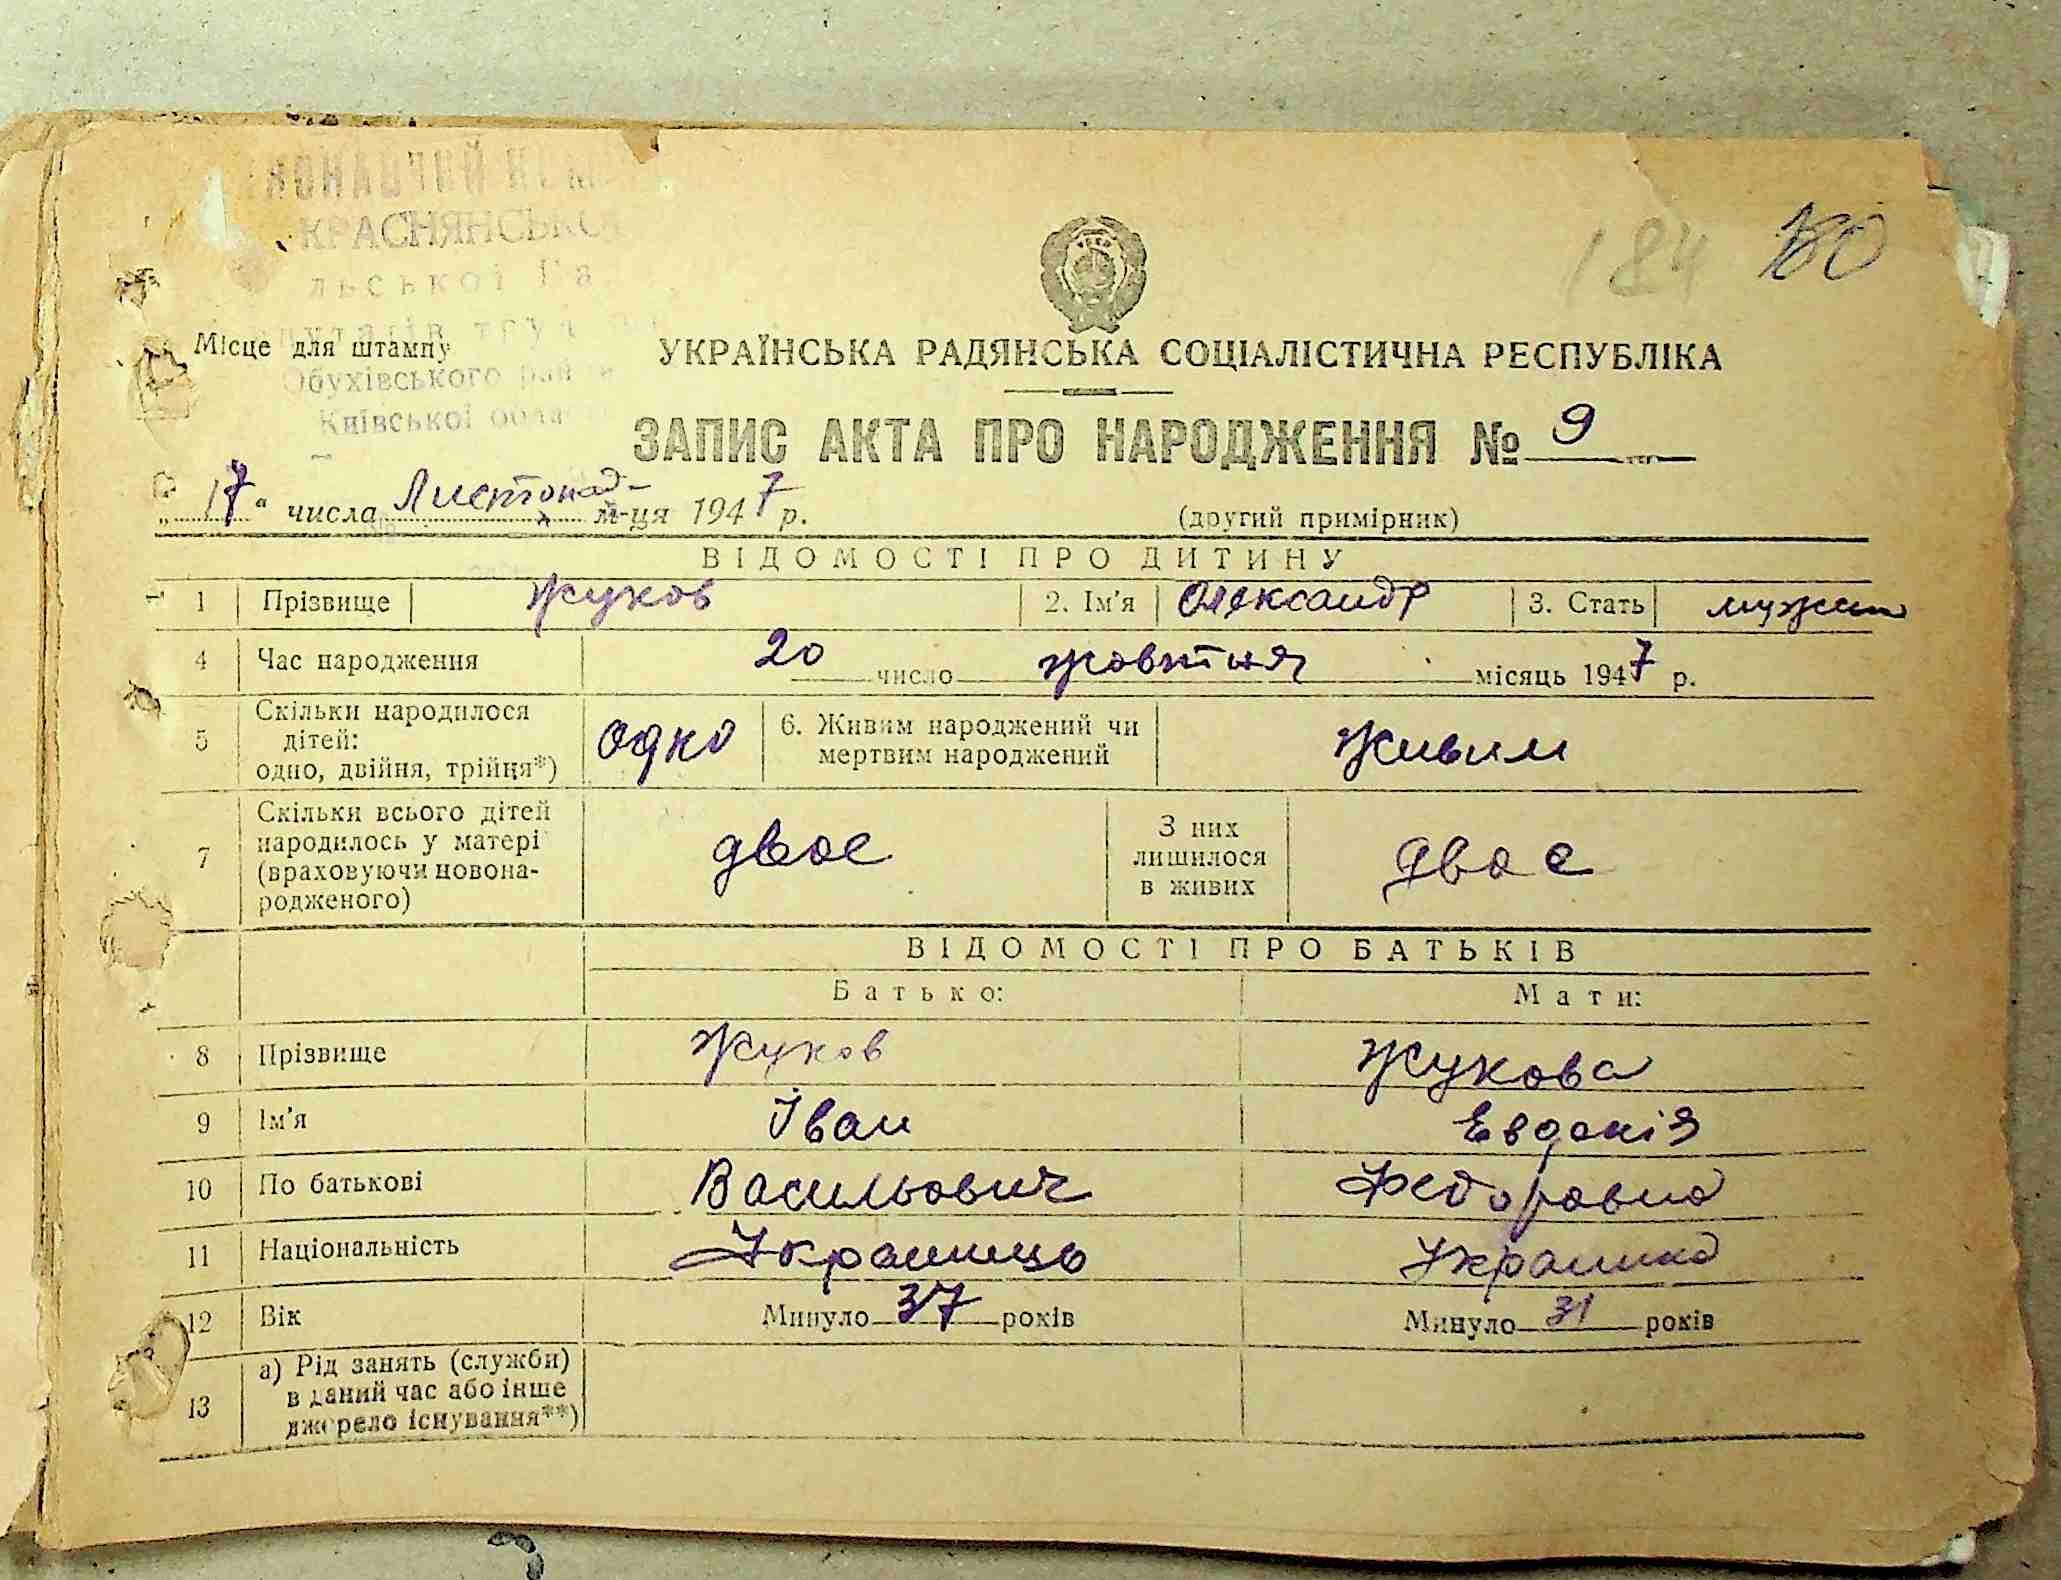 КРАСНЯНСЬКО
184 180
Місце для штампу
Обухівського
Київської
УКРАЇНСЬКА РАДЯНСЬКА СОЦІАЛІСТИЧНА РЕСПУБЛІКА
ЗАПИС АКТА ПРО НАРОДЖЕННЯ № 9
„17“ числа Листопад- м-ця 1947 р.
(другий примірник)
ВІДОМОСТІ ПРО ДИТИНУ
1 Прізвище Жуков 2. Ім'я Олександр 3. Стать
4 Час народження 20 число жовтня місяць 1947 р.
5 Скільки народилося дітей: одно, двійня, трійця*) одно 6. Живим народжений чи мертвим народжений Живим
7 Скільки всього дітей народилось у матері (враховуючи новонародженого) двое З них лишилося в живих двое
ВІДОМОСТІ ПРО БАТЬКІВ
Батько: Мати:
8 Прізвище Жуков Жукова
9 Ім'я Іван Евдокія
10 По батькові Васильович Федоровна
11 Національність Украинець Украинка
12 Вік Минуло 37 років Минуло 31 років
13 а) Рід занять (служби) в даний час або інше джерело існування**)